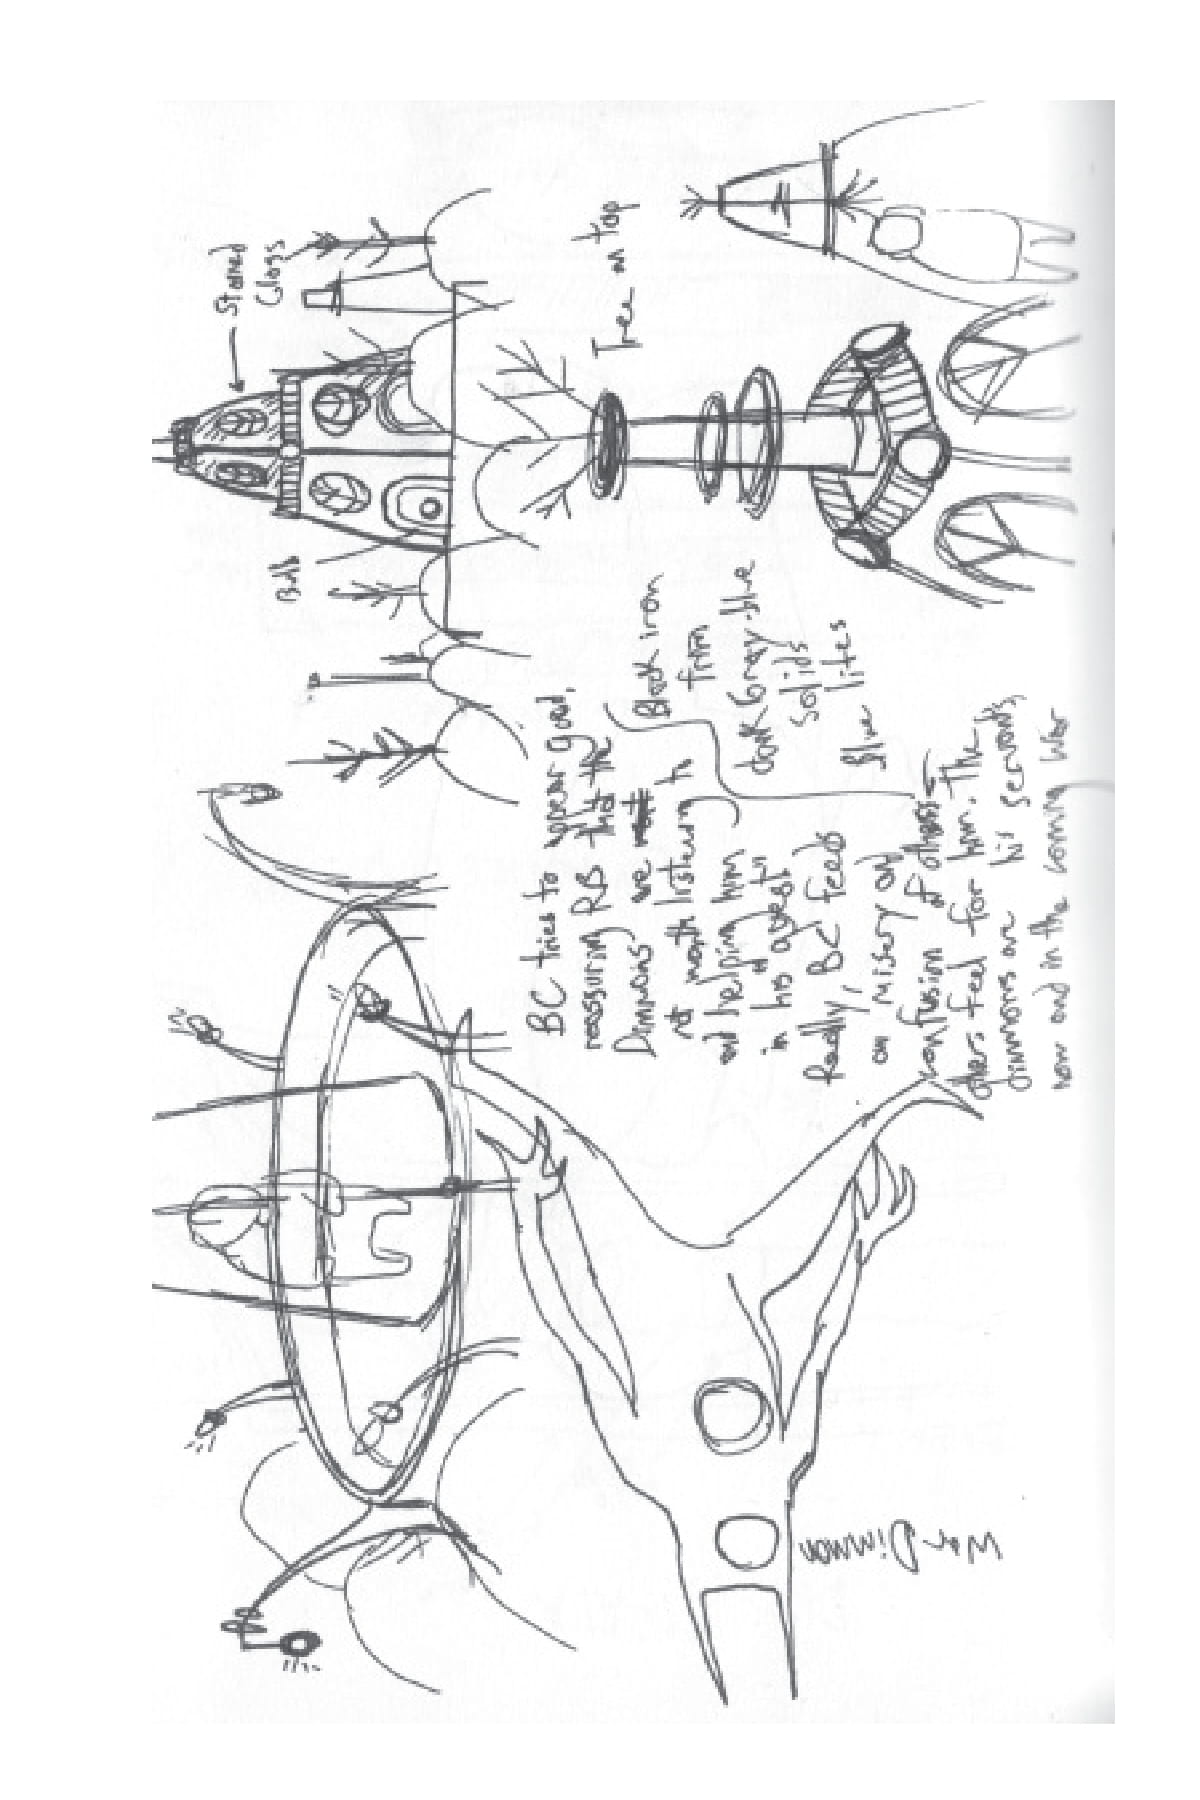 Stained
Glass
Bulb
Tree on top
Black iron
trim
dark Gray-blue
Solids
Blue lites
BC tries to appear good,
reassuring RB that the
Dimmons are
not worth listening to
and helping him
in his "quest"
Really, BC feeds
on misery and
confusion of others
others feel for him. The
Dimmons are his servants,
now and in the coming War
War Dimmon